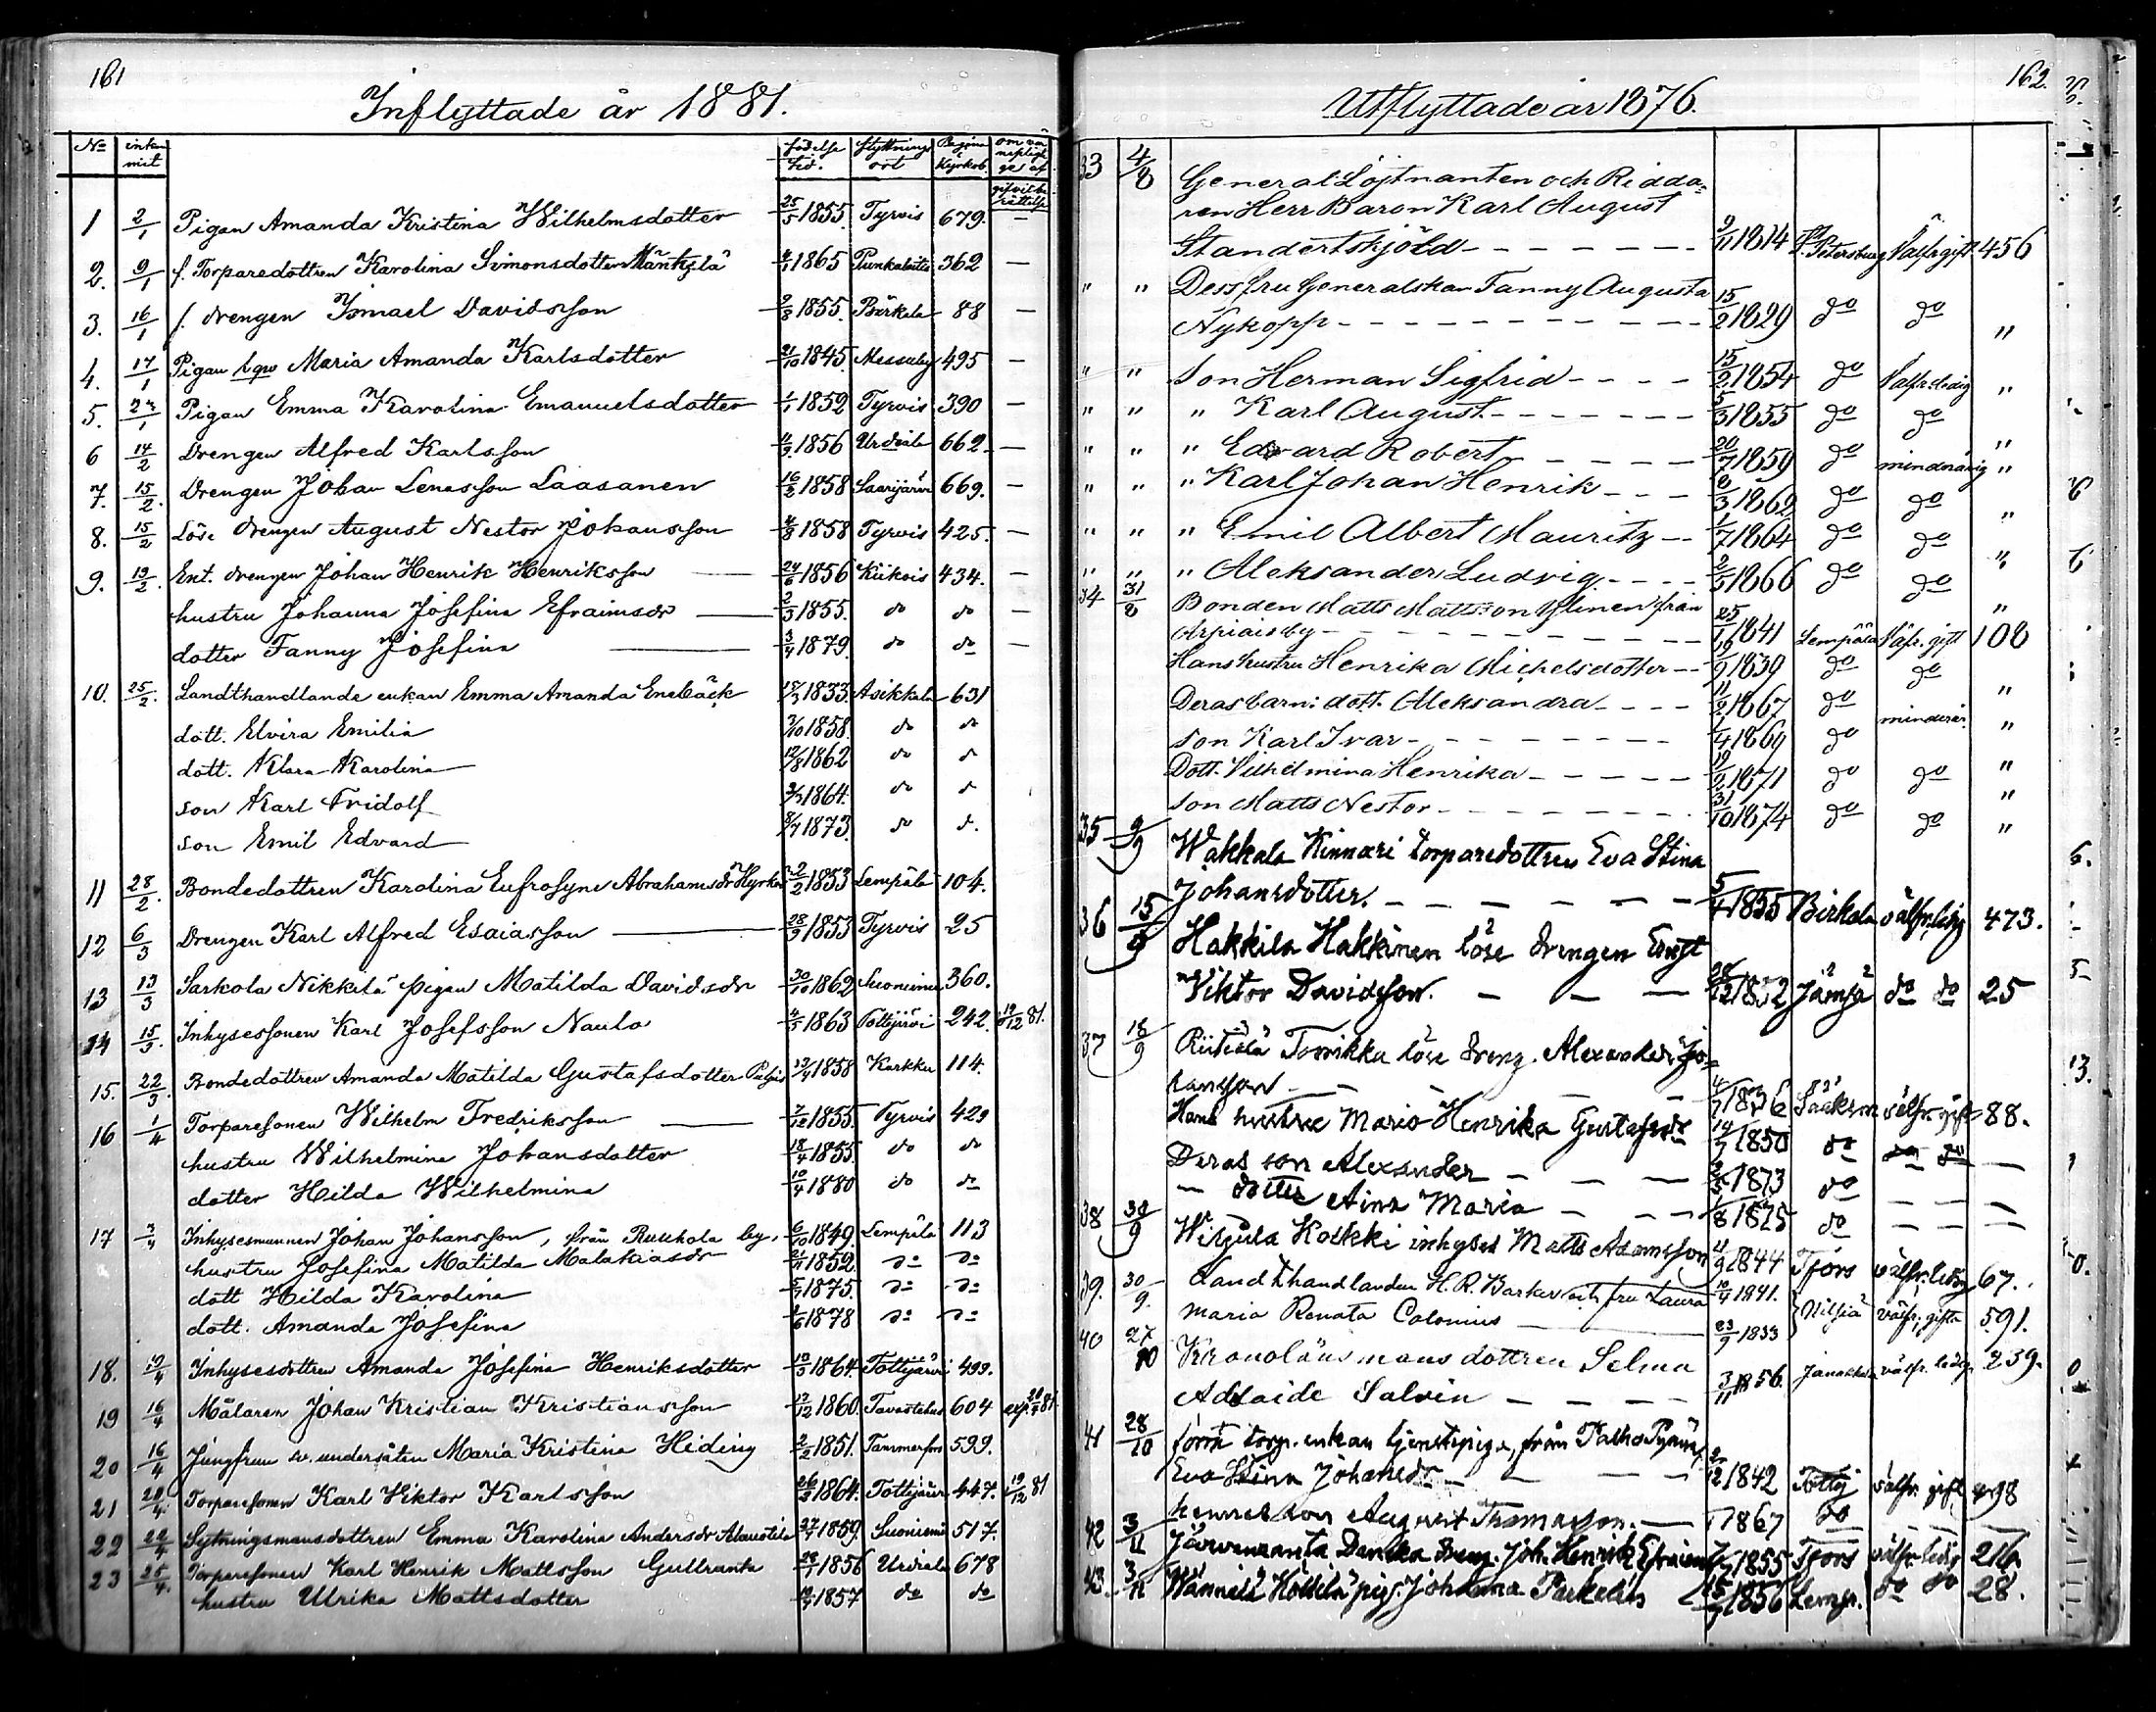 161
Inflyttade år 1881.
No inkommit födelse tid. flyttnings ort Pagina i Kyrkob.
1 2/1 Pigan Amanda Kristina Wilhelmsdotter 25/5 1855. Tyrvis 679. —
2. 9/1 f. Torparedottren Karolina Simonsdotter 1865 362 —
3. 16/1 f. drengen Ismael Davidsson 2/8 1855. Birkala 88 —
4. 17/1 Pigan Maria Amanda Karlsdotter 21/10 1845. Messuby 495 —
5. Pigan Emma Karolina Emanuelsdotter 1/1 1852 Tyrvis 390 —
6 14/2 Drengen Alfred Karlsson 1856 Urdiala 662. —
7. 15/2. Drengen Johan Lenasson Laasanen 16/2 1858 Saarijärvi 669. —
8. 15/2 Löse drengen August Nestor Johansson 1858 Tyrvis 425. —
9. 19/2. Ent. drengen Johan Henrik Henriksson 24/6 1856 Kiikois 434. —
hustru Johanna Josefina Efraimsdr 2/3 1855. do do —
dotter Fanny Josefina 3/4 1879. do do —
10. 25/2. Landthandlande enkan Emma Amanda Enebäck 1833. Asikkala 631
dott. Elvira Emilia 3/10 1858. do do
dott. Klara Karolina 12/8 1862 do do
son Karl Fridolf 1864. do do
son Emil Edvard 8/7 1873. do do.
11 28/2. Bondedottren Karolina Eufrosyne Abrahamsdr 1853 Lempälä 104.
12 6/3 Drengen Karl Alfred Esaiasson 28/9 1853 Tyrvis 25
13 13/3 Sarkola Nikkilä pigan Matilda Davidsdr 30/10 1862 Suoniemi 360.
14 15/3. Inhysessonen Karl Josefsson Naula 4/5 1863 Tottijärvi 242. 19/12 81.
15. 22/3. Bondedottren Amanda Matilda Gustafsdotter 1858 Karkku 114.
16 1/4 Torparesonen Wilhelm Fredriksson 7/12 1855. Tyrvis 429
hustru Wilhelmina Johansdotter 18/4 1855. do do
dotter Hilda Wilhelmina 10/4 1880 do do
17 3/4 Inhysesmannen Johan Johansson, från Ruskola by. 6/10 1849. Lempälä 113
hustru Josefina Matilda Malakiasdr 21/11 1852. do do
dott Hilda Karolina 1875. do do
dott. Amanda Josefina 1878 do do
18. 10/4 Inhysesdottren Amanda Josefina Henriksdotter 1864. Tottijärvi 499.
19 16/4 Målaren Johan Kristian Kristiansson 1860. Tavastehus 604
20 16/4 Jungfrun sv. undersåten Maria Kristina Hiding 2/2 1851. Tammerfors 599.
21 20/4. Torparesonen Karl Viktor Karlsson 26/3 1864. Tottijärvi 447. 19/12 81
22 Sytningsmansdottren Emma Karolina Andersdr 1859. Suoniemi 517.
23 25/4. Torparesonen Karl Henrik Mattsson Gullranta 1856 Urdiala 678
hustru Ulrika Mattsdotter 1857 do do
162.
Utflyttade år 1876.
33 4/8 General Löjtnanten och Ridda-
ren Herr Baron Karl August
Standertskjöld 9/11 1814 St. Petersburg Välfr. gift 456
" " Dess fru Generalskan Fanny Augusta
Nykopp 15/2 1829 do do "
" " Son Herman Sigfrid 15/2 1854 do Välfr. ledig "
" " " Karl August 5/3 1855 do do
" " " Edvard Robert 20/7 1859 do minderårig "
" " " Karl Johan Henrik 8/3 1862 do do "
" " " Emil Albert Mauritz 1/7 1864 do do "
" " " Aleksander Ludvig 1866 do do "
34 31/8 Bonden Matts Mattsson från
Arpiais by 25/1 1841 Lempäla Välfr. gift 108
Hans hustru Henrika Michelsdotter 19/9 1839 do do "
Deras barn: dott. Aleksandra 11/2 1867 do minderår. "
son Karl Ivar 1/4 1869 do "
Dott. Vilhelmina Henrika 19/2 1871 do do "
son Matts Nestor 31/10 1874 do do "
35 9/9 Wakkala Kinnari torparedottren Eva Stina
Johansdotter. 5/4 1855 Birkala välfr. ledig 473.
36 15/9 Hakkila Hakkinen löse drengen Ernst
Viktor Davidsson. 28/12 1852 Jämsä do do 25
37 18/9 löse dreng. Alexander Jo-
hansson 1836 Sääksm. välfr. gift 88.
Hans hustru Maria Henrika Gustafsdr 1850 do do do —
Deras son Alexander 1873 do — —
— dotter Aina Maria 1/8 1875 do — —
38 30/9 Kolkki inhyses Matts Adamsson 1844 Tfors välfr. ledig 67.
39. 30/9. Landthandlanden H. R. Barker och fru Laura 10/4 1841.
Maria Renata Calonius 23/9 1833 Nilsiä välfr. gifta 591.
40 27/10 Kronolänsmans dottren Selma
Adelaide Salvin 3/11 1856. Janakkala välfr. ledig. 239.
41 28/10 förra torp. enkan tjenstepiga, från
Eva Stina Johansdr 2/12 1842 Tottij välfr. gift 498
hennes son August Thomasson. 1867 do
42 3/11 Järvenranta dreng. Joh. Henrik 1855 Tfors välfr. ledig 216
43. 3/11 pig. Johanna 1856 Lempä. do do 28.